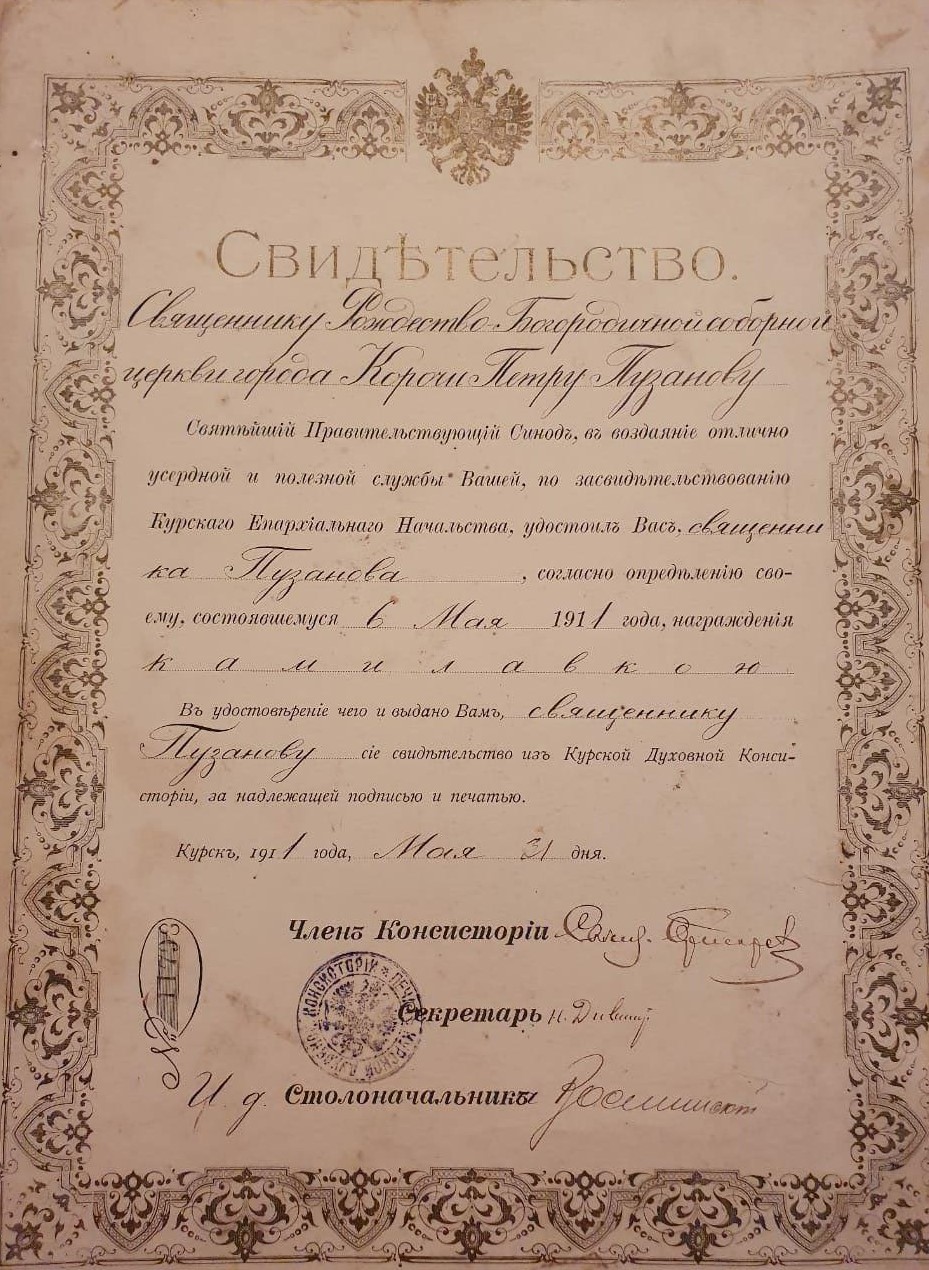 Свидѣтельство.
Священнику Рождество-Богородичной соборной
церкви города Корочи Петру Пузанову
Святѣйшій Правительствующій Синодъ, въ воздаяніе отлично
усердной и полезной службы Вашей, по засвидѣтельствованію
Курскаго Епархіальнаго Начальства, удостоилъ Васъ, священни
ка Пузанова, согласно опредѣленію сво-
ему, состоявшемуся 6 Мая 1911 года, награжденія
камилавкою
Въ удостовѣреніе чего и выдано Вамъ, священнику
Пузанову сіе свидѣтельство изъ Курской Духовной Конси-
сторіи, за надлежащей подписью и печатью.
Курскъ, 1911 года, Мая 31 дня.
Членъ Консисторіи
Секретарь
И. д. Столоначальникъ
№